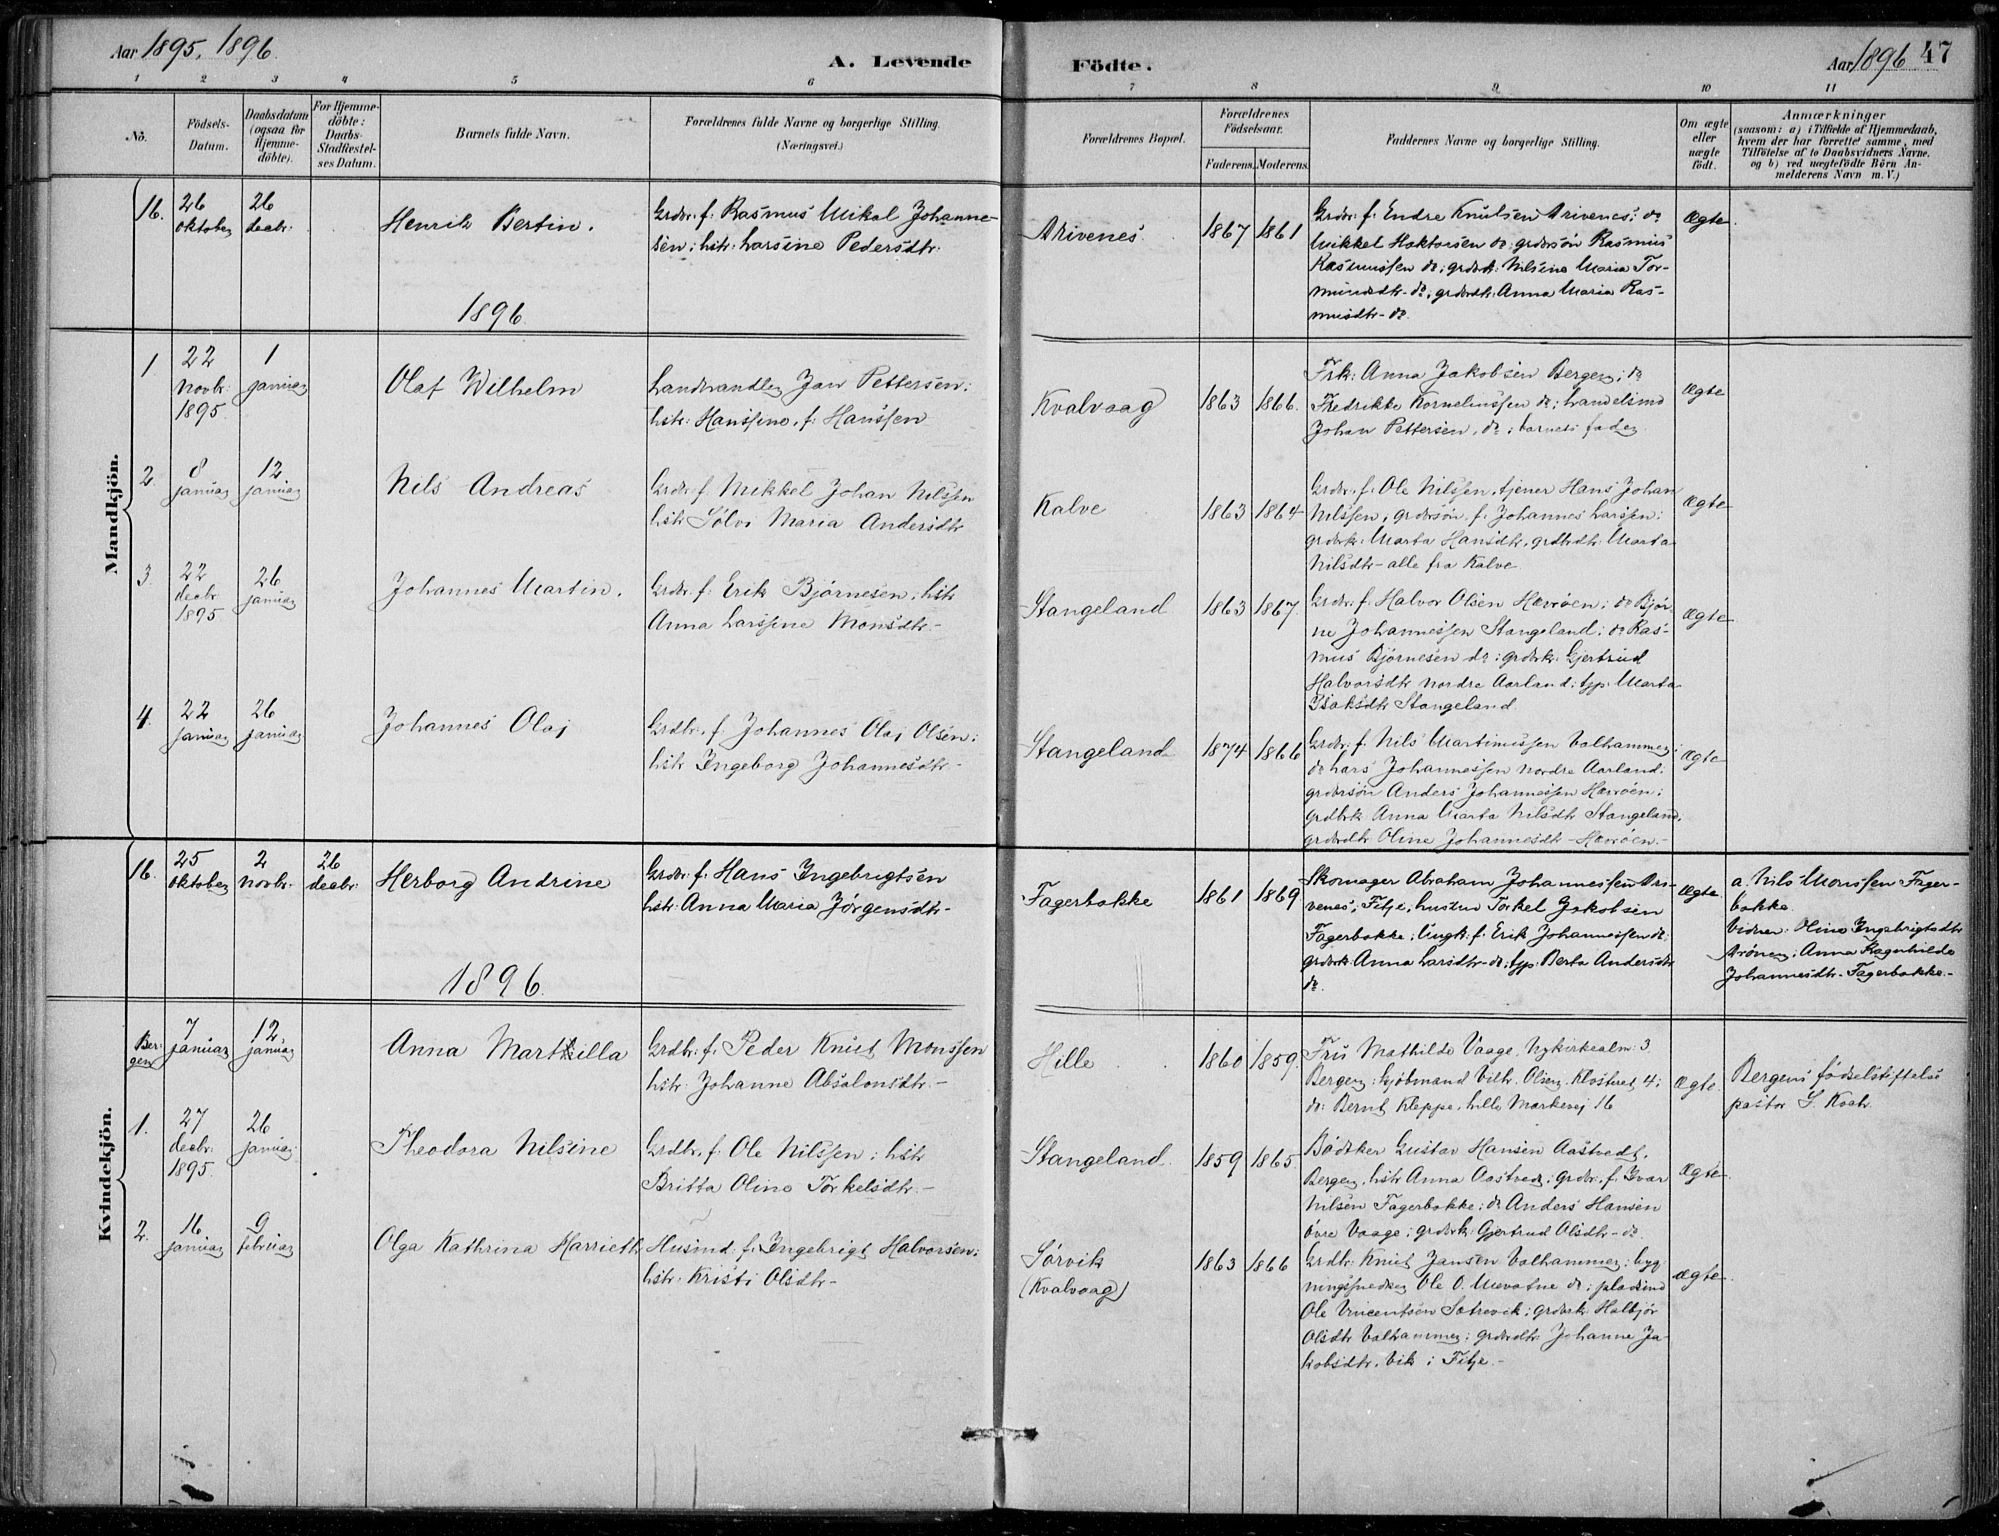 Aar 1895, 1896.
A. Levende Födte.
Aar 1896 47
1 2 3 4 5 6 7 8 9 10 11
No.
Födsels-Datum.
Daabsdatum (ogsaa for Hjemme-döbte).
For Hjemme-döbte: Daabs-Stadfæstel-ses Datum.
Barnets fulde Navn.
Forældrenes fulde Navne og borgerlige Stilling.
(Næringsvei.)
Forældrenes Bopæl.
Forældrenes Födselsaar.
Faderens. Moderens.
Faddernes Navne og borgerlige Stilling.
Om ægte eller uægte födt.
Anmærkninger
(saasom: a) i Tilfælde af Hjemmedaab,
hvem der har forrettet samme, med
Tilföielse af to Daabsvidners Navne.
og b) ved uægtefödte Börn An-
melderens Navn m. V.)
Mandkjön.
16. 26 oktober 26 decbr. Henrik Bertin.
Grdbr. f. Rasmus Mikal Johanne-
sen; hstr. Larsine Pedersdtr.
Arivenes 1867 1861
Grdbr. f. Endre Knutsen Arivenes; do
Mikkel Haktorsen do; grdbrsön Rasmus
Rasmussen do; grdbrk. Nilsine Maria Tor-
mundsdtr - do, grdbrdtr. Anna Maria Ras-
musdtr - do.
Ægte
1896
1 22 novbr. 1895 1 januar Olaf Wilhelm
Landhandler Jan Pettersen;
hstr. Hanssine, f. Hanssen
Kvalvaag 1863 1866.
Frk. Anna Jakobsen Bergen; do
Fredrikke Korneliussen do; handelsmd
Johan Pettersen, do; barnets fader.
Ægte
2. 8 januar 12 januar Nils Andreas
Grdbr. f. Mikkel Johan Nilssen
hstr Sølvi Maria Andersdtr
Kalve 1863 1864
Grdbr. f. Ole Nilssen, tjener Hans Johan
Nilssen, grdbrsön f. Johannes Larssen;
grdbrk. Marta Hansdtr, grdbrdtr. Marta
Nilsdtr - alle fra Kalve
Ægte
3. 22 decbr 1895 26 januar Johannes Martin.
Grdbr. f. Erik Bjørnesen; hstr
Anna Larssine Monsdtr -
Stangeland 1863 1867.
Grdbr. f. Halvor Olsen Hevrøen; do Bjør-
ne Johannessen Stangeland; do Ras-
mus Bjørnesen do; grdbrk. Gjertrud
Halvorsdtr nordre Aarland; typ. Marta
Isaksdtr Stangeland
Ægte
4. 22 januar 26 januar Johannes Olaj
Grdbr. f. Johannes Olaj Olsen;
hstr Ingeborg Johannesdtr -
Stangeland 1874 1866
Grdbr. f. Nils Martinussen Valhammer;
do Lars Johannessen nordre Aarland;
grdbrsön Anders Johannessen Hevrøen;
grdbrk Anna Marta Nilsdtr Stangeland;
grdbrdtr Oline Johannesdtr - Hevrøen. -
Ægte
Kvindekjön.
16. 25 oktober 2 novbr. 26 decbr. Herborg Andrine
Grdbr. f. Hans Ingebrigtsen
hstr. Anna Maria Jørgensdtr -
Fagerbakke 1861 1869
Skomager Abraham Johannessen Ari-
venes, Fitje, hustru Torkel Jakobsen
Fagerbakke; Ungk. f. Erik Johannessen do
grdbrk Anna Larsdtr - do; typ. Berta Andersdtr
do.
Ægte
a. Nils Monssen Fager-
bakke.
Vidner: Oline Ingebrigtsdtr
Arønen; Anna Ragnhilde
Johannesdtr - Fagerbakke. -
1896.
Ber-gen 7 januar 12 januar Anna Marthilla
Grdbr. f. Peder Knut Monssen
hstr. Johanne Absalonsdtr. -
Hille 1860 1859.
Fru Mathilde Vaage, Nykirkealm. 3
Bergen; kjøbmand Vilh. Olsen Klosteret 4;
do Bernt Kleppe, lille Markevej 16
Ægte
Bergens fødselstiftelse
pastor S. Koch.
1. 27 decbr. 1895 26 januar Theodora Nilsine
Grdbr. f. Ole Nilssen; hstr
Britta Oline Torkelsdtr. -
Stangeland 1859 1865
Bødtker Gustav Hansen Aastvedt,
Bergen, hstr Anna Aastvedt; grdbr. f. Ivar
Nilsen Fagerbakke; do Anders Hansen
øvre Vaage; grdbrk. Gjertrud Olsdtr - do
Ægte
2. 16 januar 9 februar Olga Kathrina Harrieth
Husmd: f. Ingebrigt Halvorsen;
hstr. Kristi Olsdtr -
Sørvik
(Kvalvaag)
1863 1866
Grdbr. Knut Jansen Valhammer; byg-
ningssnedker Ole O. Mevatne do; pladsmd
Ole Vincentsen Sætrevik; grdbrk. Halbjør
Olsdtr Valhammer; grdbrdtr Johanne Ja-
kobsdtr. Vik i Fitje -
Ægte